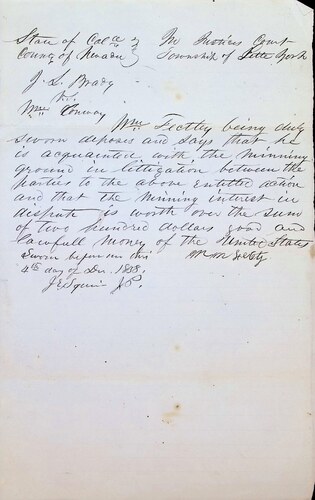 State of Cala } In Justices Court
County of Nevada } Township of Little York
J. S. Brady
vs.
Wm Conway
Wm Feetley being duly
sworn deposes and says that he
is acquainted with the minning
ground in littigation between the
parties to the above entitled action
and that the minning interest in
dispute is worth over the sum
of two hundred dollars good and
lawfull money of the United States
Sworn before me this Wm
4th day of Dec. 1858.
J. P.